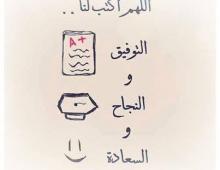 اللهم اكتب لنا ..
A+
التوفيق
و
النجاح
و
السعادة